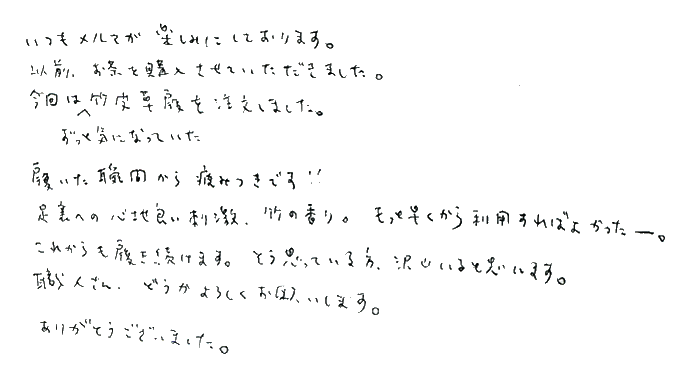 いつもメルマガ楽しみにしております。
以前、お茶を購入させていただきました。
今回は竹皮草履を注文しました。
ずっと気になっていた
履いた瞬間から病みつきです!!
足裏への心地良い刺激、竹の香り。もっと早くから利用すればよかったー。
これからも履き続けます。そう思っている方、沢山いると思います。
職人さん、どうかよろしくお願いします。
ありがとうございました。